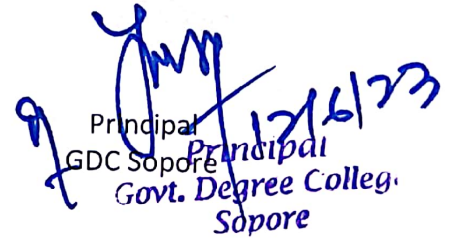 12/6/23
Principal
GDC Sopore
Principal
Govt. Degree Colleg.
Sopore